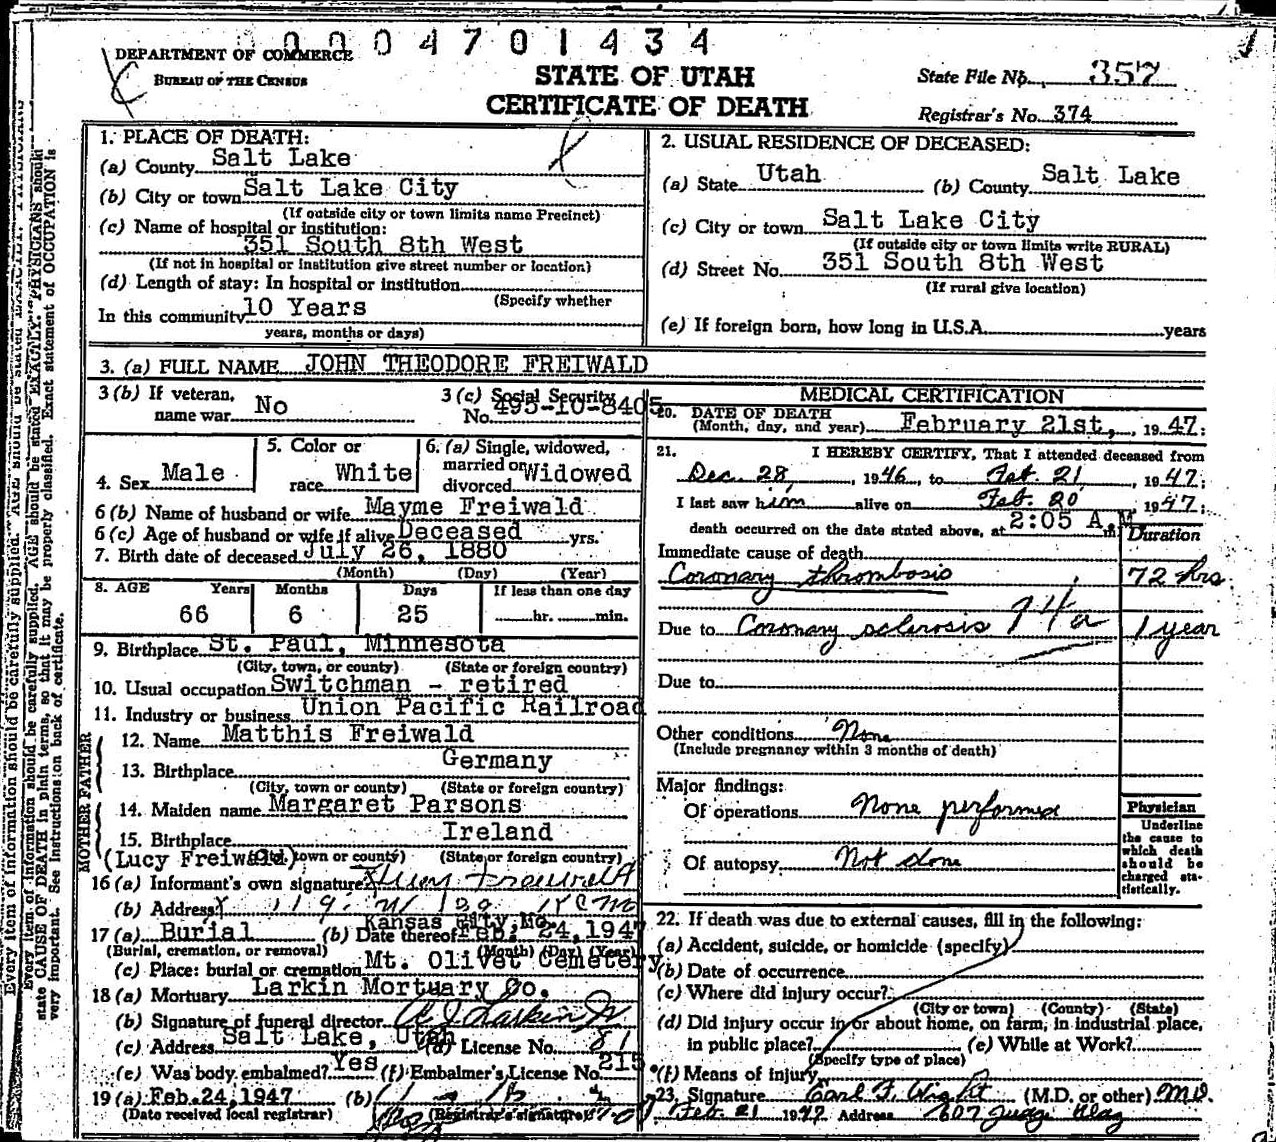 0004701434
DEPARTMENT OF COMMERCE
BUREAU OF THE CENSUS
STATE OF UTAH
CERTIFICATE OF DEATH
State File No. 357
Registrar's No. 374
1. PLACE OF DEATH:
(a) County Salt Lake
(b) City or town Salt Lake City
(If outside city or town limits name Precinct)
(c) Name of hospital or institution:
351 South 8th West
(If not in hospital or institution give street number or location)
(d) Length of stay: In hospital or institution
(Specify whether
In this community 10 Years
years, months or days)
2. USUAL RESIDENCE OF DECEASED:
(a) State Utah (b) County Salt Lake
(c) City or town Salt Lake City
(If outside city or town limits write RURAL)
(d) Street No. 351 South 8th West
(If rural give location)
(e) If foreign born, how long in U.S.A. years
3. (a) FULL NAME JOHN THEODORE FREIWALD
3 (b) If veteran, name war No
3 (c) Social Security No. 495-10-8405
4. Sex Male
5. Color or race White
6. (a) Single, widowed, married or divorced Widowed
6 (b) Name of husband or wife Mayme Freiwald
6 (c) Age of husband or wife if alive Deceased yrs.
7. Birth date of deceased July 26, 1880
(Month) (Day) (Year)
8. AGE Years Months Days If less than one day
66 6 25 hr. min.
9. Birthplace St. Paul, Minnesota
(City, town, or county) (State or foreign country)
10. Usual occupation Switchman - retired
11. Industry or business Union Pacific Railroad
FATHER
12. Name Matthis Freiwald
13. Birthplace Germany
(City, town, or county) (State or foreign country)
MOTHER
14. Maiden name Margaret Parsons
15. Birthplace Ireland
(Lucy Freiwald) (City, town or county) (State or foreign country)
16 (a) Informant's own signature Lucy Freiwald
(b) Address 119 W
Kansas City, Mo.
17 (a) Burial (b) Date thereof Feb. 24, 1947
(Burial, cremation, or removal) (Month) (Day) (Year)
(c) Place: burial or cremation Mt. Olivet Cemetery
18 (a) Mortuary Larkin Mortuary Co.
(b) Signature of funeral director A J Larkin Jr
(c) Address Salt Lake, Utah (d) License No. 81
(e) Was body embalmed? Yes (f) Embalmer's License No. 215
19 (a) Feb. 24, 1947 (b)
(Date received local registrar) (Registrar's signature)
MEDICAL CERTIFICATION
20. DATE OF DEATH
(Month, day, and year) February 21st, 1947:
21. I HEREBY CERTIFY, That I attended deceased from
Dec. 28, 1946, to Feb. 21, 1947;
I last saw him alive on Feb. 20 1947;
death occurred on the date stated above, at 2:05 A.M. m
Duration
Immediate cause of death
Coronary thrombosis 72 hrs.
Due to Coronary sclerosis 94a 1 year
Due to
Other conditions None
(Include pregnancy within 3 months of death)
Major findings:
Of operations None performed
Of autopsy Not done
Physician
Underline the cause to which death should be charged statistically.
22. If death was due to external causes, fill in the following:
(a) Accident, suicide, or homicide (specify)
(b) Date of occurrence
(c) Where did injury occur?
(City or town) (County) (State)
(d) Did injury occur in or about home, on farm, in industrial place,
in public place? (e) While at Work?
(Specify type of place)
(f) Means of injury
23. Signature Earl F. Wight (M.D. or other) M.D.
Feb. 21 1947 Address 607 Judge Bldg
Every item of information should be carefully supplied. AGE should be stated EXACTLY. PHYSICIANS should
state CAUSE OF DEATH in plain terms, so that it may be properly classified. Exact statement of OCCUPATION is
very important. See instructions on back of certificate.